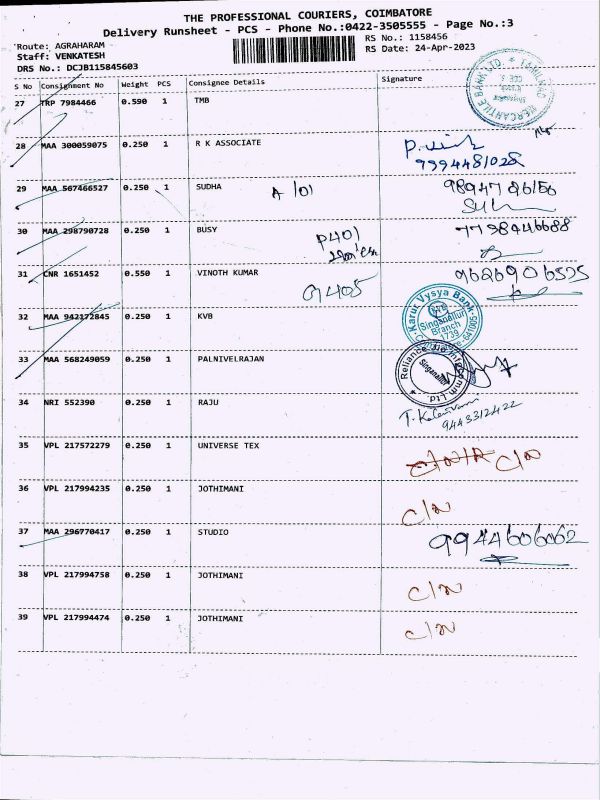 THE PROFESSIONAL COURIERS, COIMBATORE
Delivery Runsheet - PCS - Phone No.:0422-3505555 - Page No.:3
Route: AGRAHARAM
RS No.: 1158456
Staff: VENKATESH
RS Date: 24-Apr-2023
DRS No.: DCJB115845603
S No Consignment No Weight PCS Consignee Details Signature
27 TRP 7984466 0.590 1 TMB
MERCANTILE BANK LTD. * TAMILNAD
28 MAA 300059075 0.250 1 R K ASSOCIATE
9994481028
29 MAA 567466527 0.250 1 SUDHA A 101
30 MAA 298790728 0.250 1 BUSY P401 7798446688
31 CNR 1651452 0.550 1 VINOTH KUMAR G405 9626906525
32 MAA 942172845 0.250 1 KVB
Karur Vysya Bank
Singanallur
Branch
1739
641005
33 MAA 568249059 0.250 1 PALNIVELRAJAN
Singanallur
34 NRI 552390 0.250 1 RAJU
9443312422
35 VPL 217572279 0.250 1 UNIVERSE TEX
36 VPL 217994235 0.250 1 JOTHIMANI
37 MAA 296770417 0.250 1 STUDIO 9944606062
38 VPL 217994758 0.250 1 JOTHIMANI
39 VPL 217994474 0.250 1 JOTHIMANI